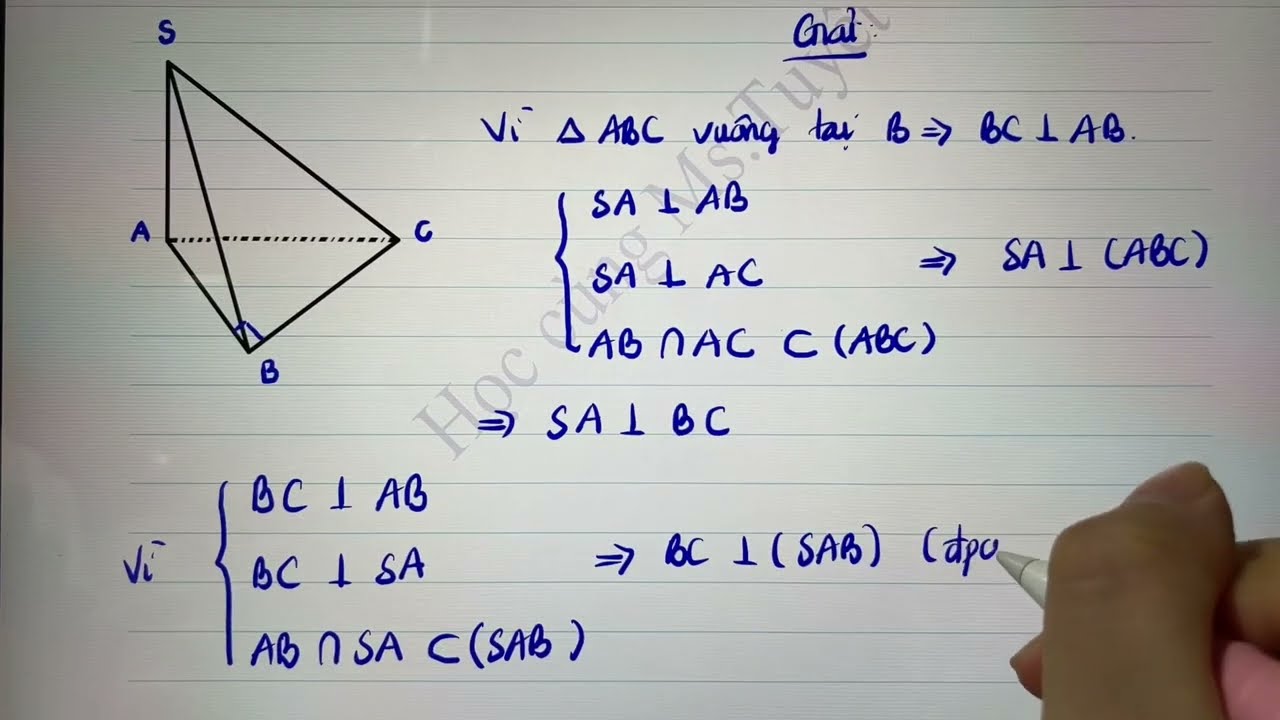 S
A
C
B
Giải:
Vì Δ ABC vuông tại B => BC ⊥ AB.
SA ⊥ AB
SA ⊥ AC
AB ∩ AC ⊂ (ABC)
=> SA ⊥ (ABC)
=> SA ⊥ BC
Vì
BC ⊥ AB
BC ⊥ SA
AB ∩ SA ⊂ (SAB)
=> BC ⊥ (SAB) (đpc
Học cùng Ms.Tuyết